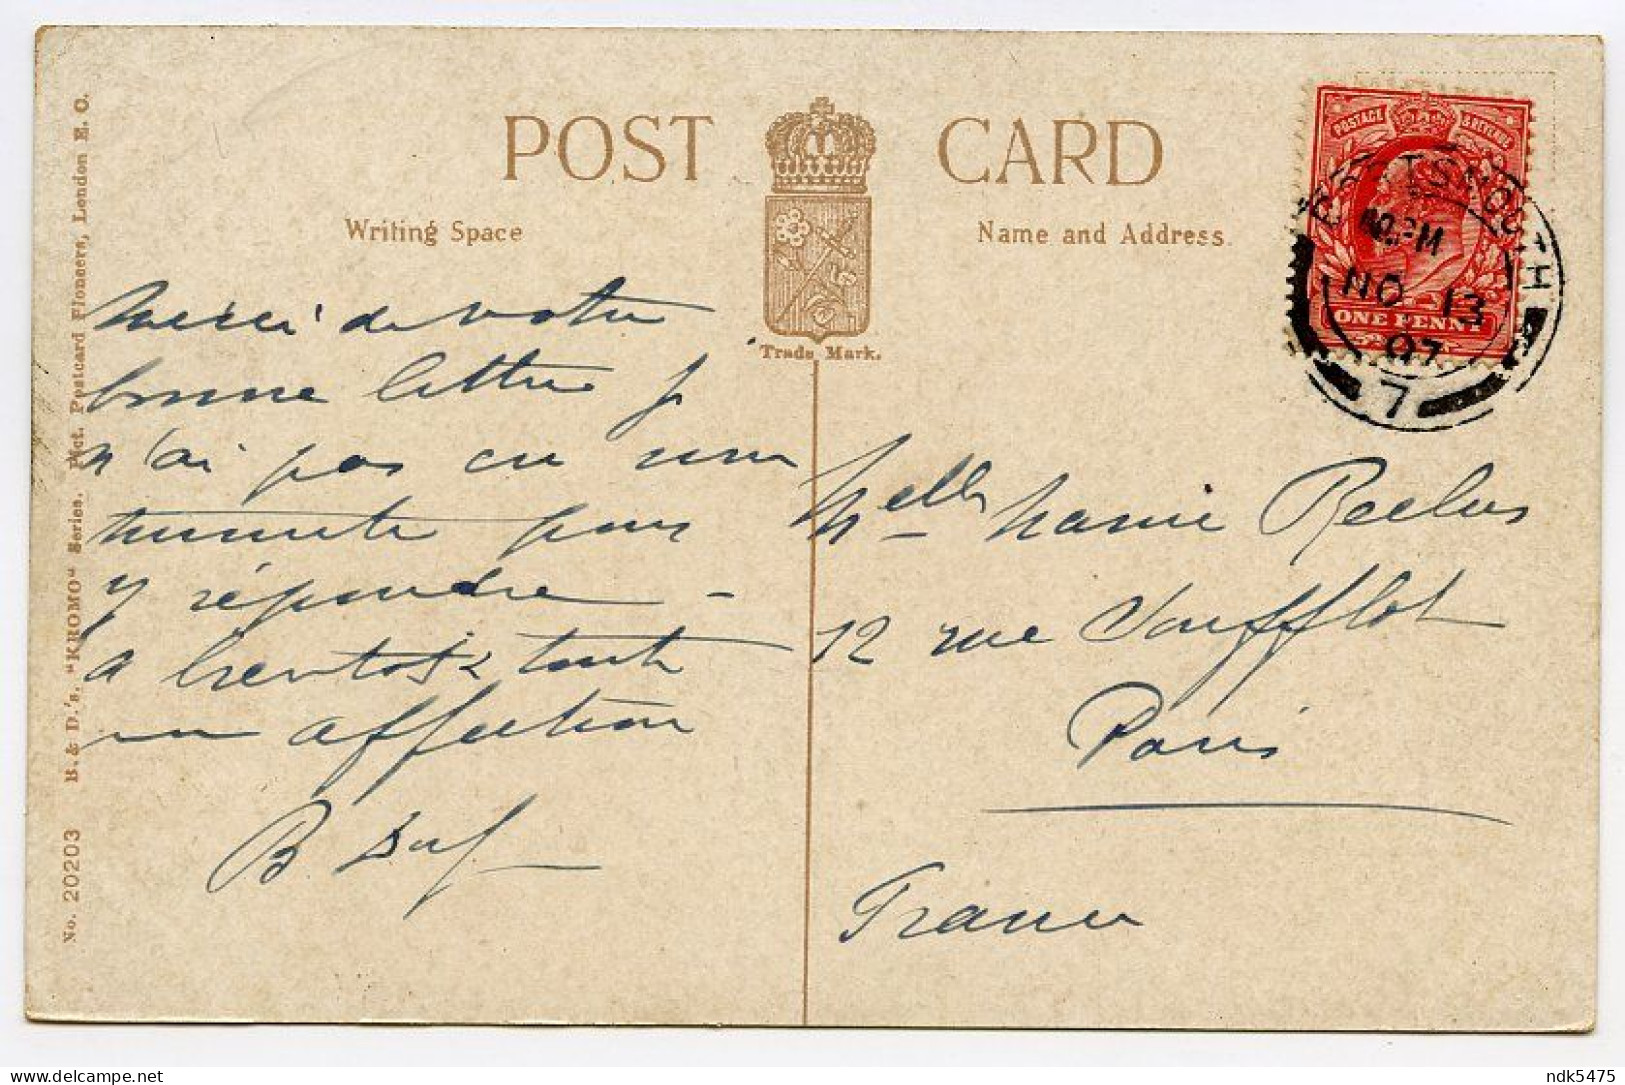 POST CARD
Writing Space
Name and Address
Trade Mark.
POSTAGE & REVENUE
ONE PENNY
PORTSMOUTH
NO 13
07
7
Merci de votre
bonne lettre j
n'ai pas eu une
minute pour
y répondre -
a bientôt & toute
mon affection
B.
Melle Marie Reclus
12 rue Soufflot
Paris
France
No. 20203 B. & D.'s. "KROMO" Series. Pict. Postcard Pioneers, London E. C.
delcampe.net
ndk5475